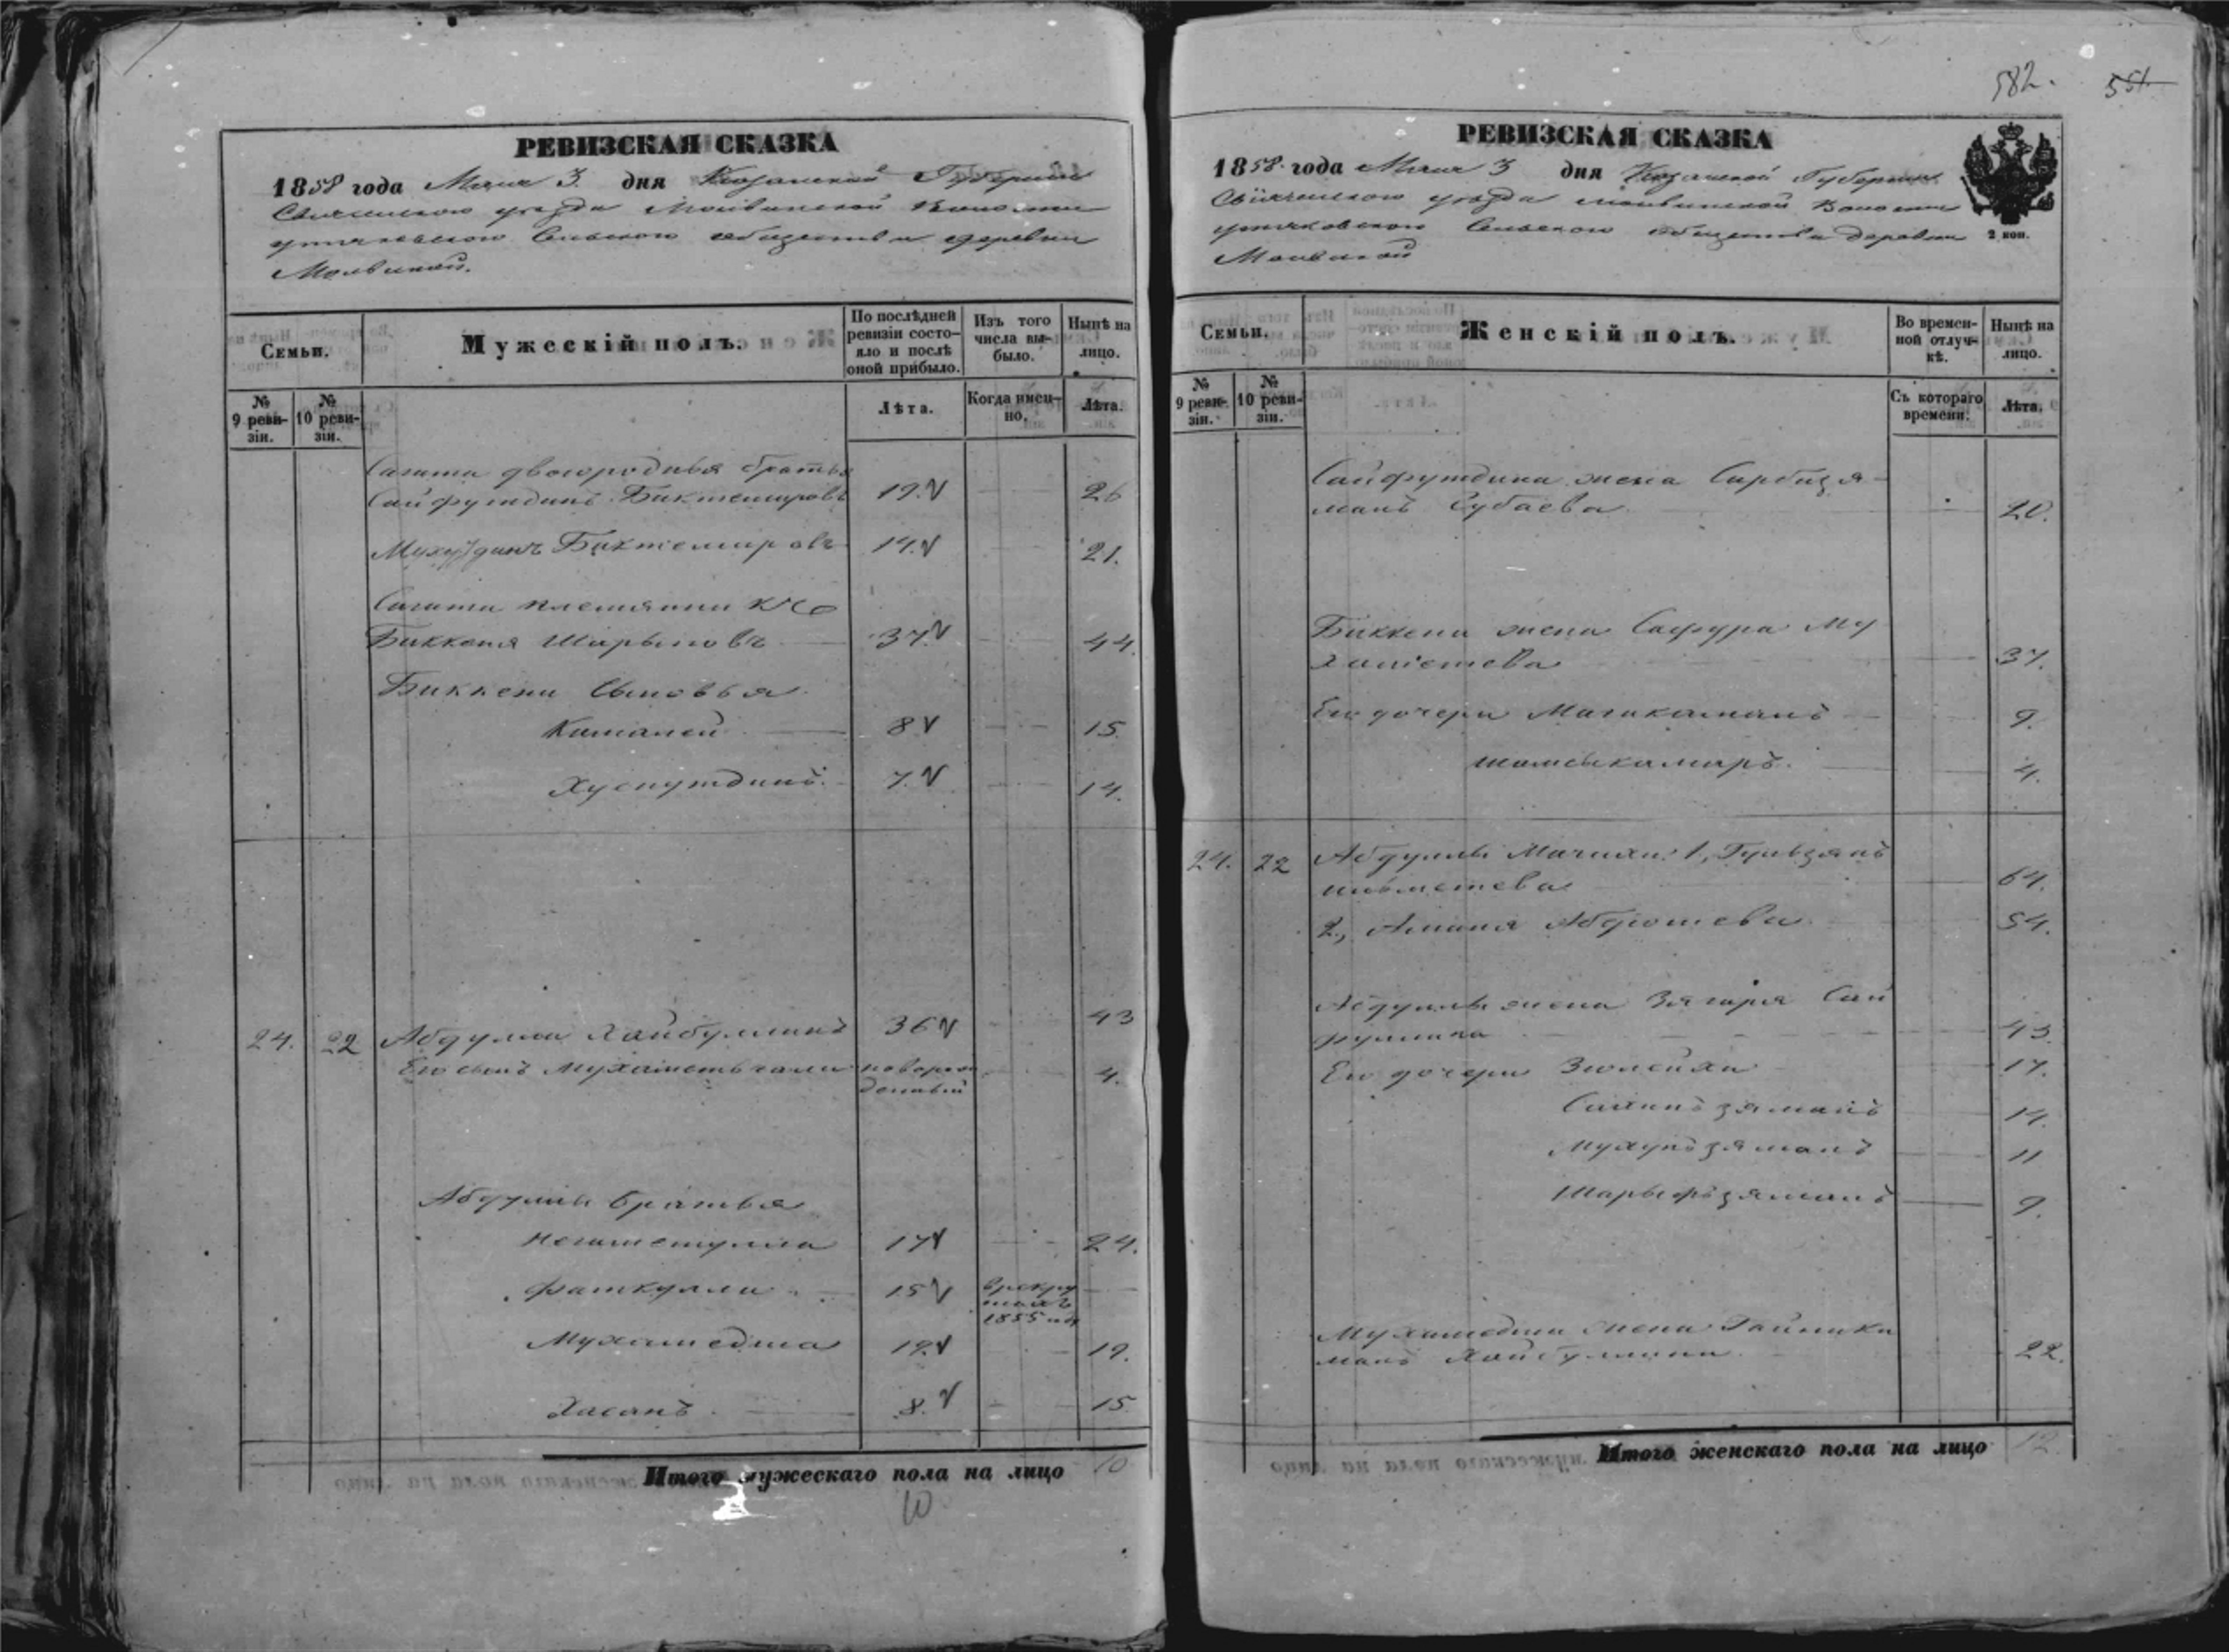 РЕВИЗСКАЯ СКАЗКА
1858 года Мая 3 дня Казанской Губернии
Свіяжскаго уѣзда Молвинской Волости
Сельскаго общества деревни
Молвиной.
Семьи.
Мужескій полъ.
По послѣдней ревизіи состо-
яло и послѣ оной прибыло.
Изъ того числа вы-
было.
Нынѣ на лицо.
№ 9 реви-
зіи.
№ 10 реви-
зіи.
Лѣта.
Когда имен-
но.
Лѣта.
Сагита двоюродныя братья
Сайфутдинъ Биктемировъ 19. 26
Биктемировъ 14. 21.
Сагита племянникъ
Биккеня Шарыповъ 37. 44.
Биккени сыновья
8 15.
Хуснутдинъ. 7. 14.
24. 22 Абдулла Хайбуллинъ 36 43
Его сынъ новорож-
денный 4.
Абдуллы братья
Негаметулла 17 24.
Фаткулла 15 в рекру-
тахъ
1855 года
Мухамедша 12. 19.
Хасанъ 8. 15.
Итого мужескаго пола на лицо 10
10
582. 551.
РЕВИЗСКАЯ СКАЗКА
1858 года Мая 3 дня Казанской Губерніи
2 коп.
Свіяжскаго уѣзда Молвинской Волости
Сельскаго общества деревни
Молвиной
Семьи.
Женскій полъ.
Во времен-
ной отлуч-
кѣ.
Нынѣ на лицо.
№ 9 реви-
зіи.
№ 10 реви-
зіи.
Съ котораго времени.
Лѣта.
Сайфутдина жена Сарбизя-
манъ Субаева 20.
Биккени жена Сафура Му
хаметева 37.
Его дочери 9.
Шамсикамаръ. 4.
24. 22 Абдуллы Мачихи: 1, Гульзянъ
64.
2, 54.
Абдуллы жена Зягиря Сай
фуллина 43.
Его дочери Зюлейха 17.
14.
11
Шарыфзяманъ 9.
Мухамедши жена Гайника
малъ Хайбуллина 22.
Итого женскаго пола на лицо 12.